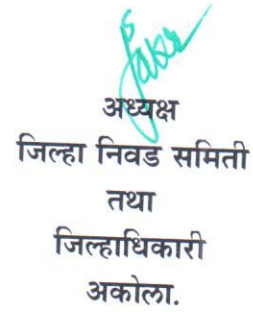 अध्यक्ष
जिल्हा निवड समिती
तथा
जिल्हाधिकारी
अकोला.